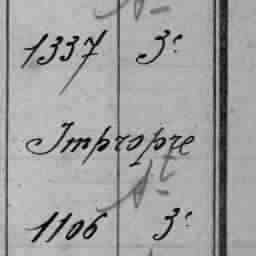 1337 3e
Impropre
1106 3e